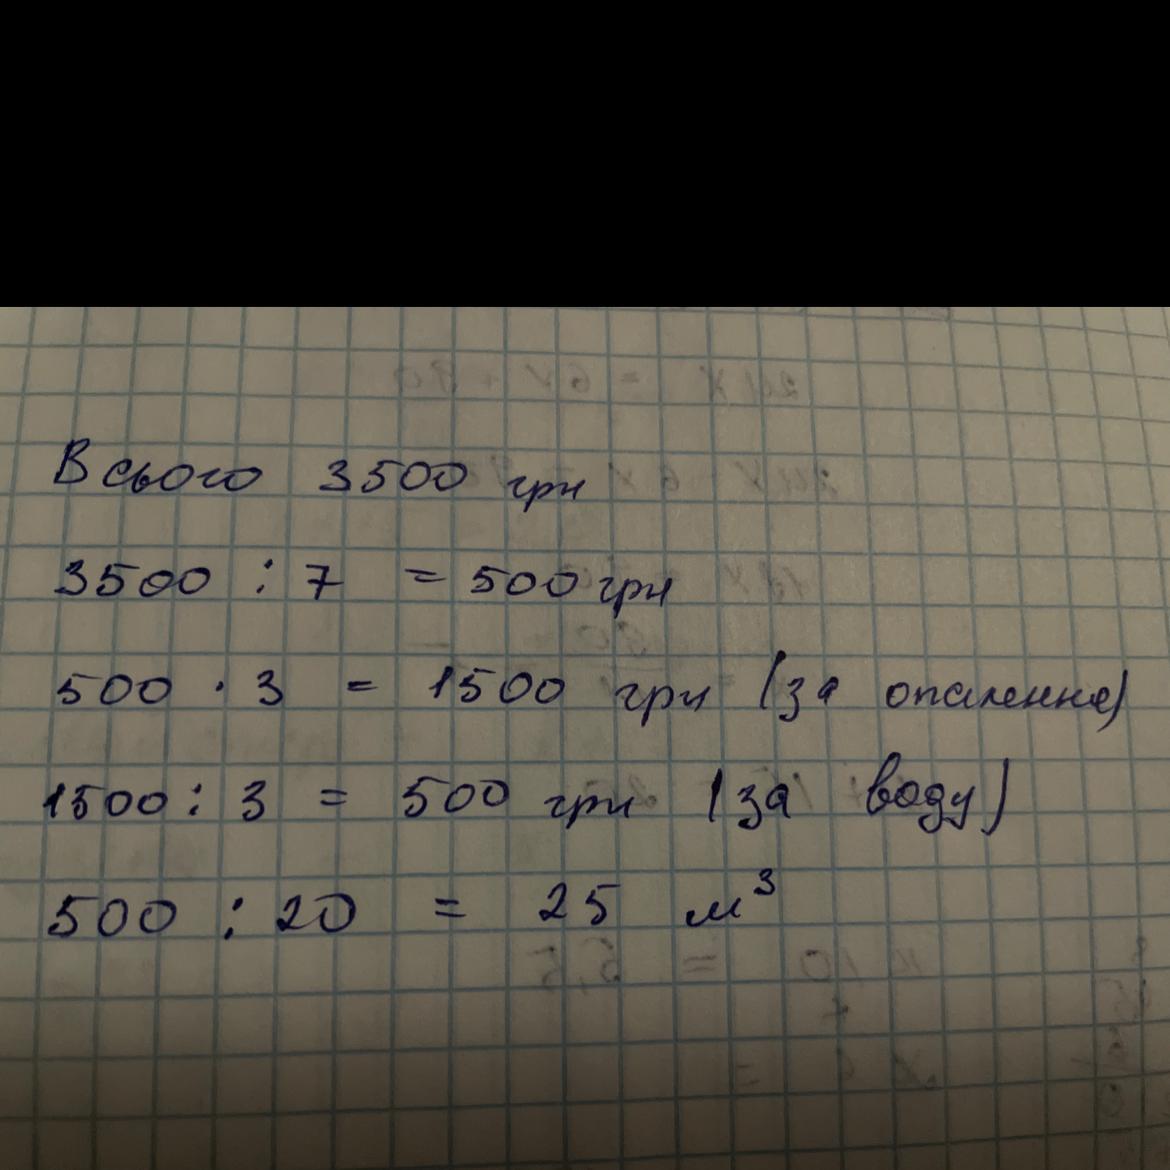 Всього 3500 грн
3500 : 7 = 500 грн
500 · 3 = 1500 грн (за опалення)
1500 : 3 = 500 грн (за воду)
500 : 20 = 25 м³